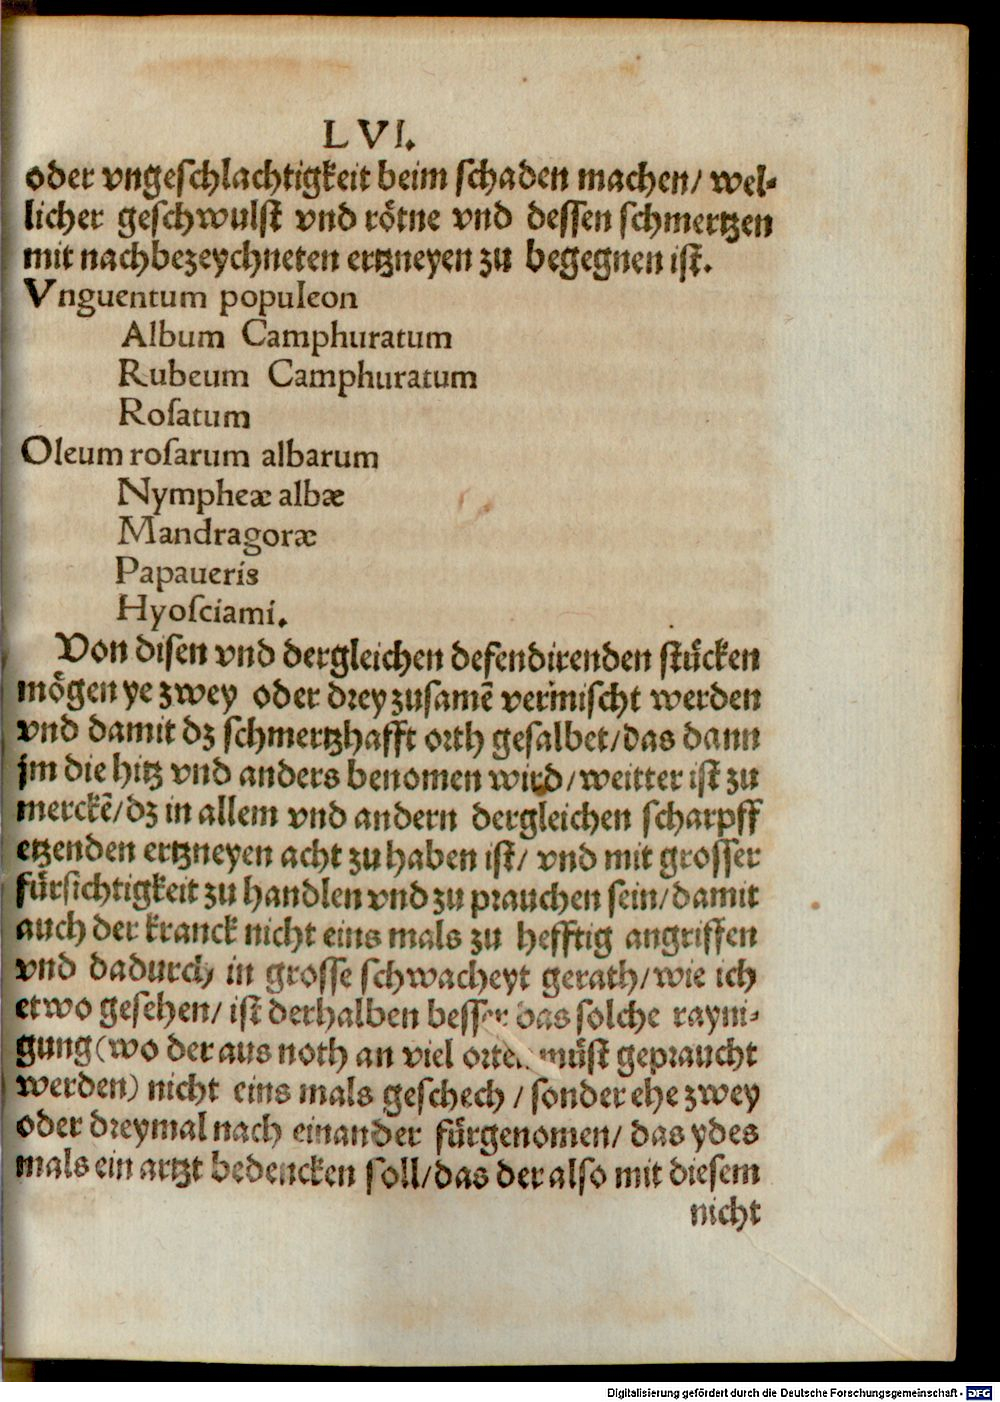 LVI.
oder vngeschlachtigkeit beim schaden machen/ wel-
licher geschwulst vnd rötne vnd dessen schmertzen
mit nachbezeychneten ertzneyen zu begegnen ist.
Vnguentum populeon
Album Camphuratum
Rubeum Camphuratum
Rosatum
Oleum rosarum albarum
Nympheæ albæ
Mandragoræ
Papaueris
Hyosciami.
Von disen vnd dergleichen defendirenden stücken
mögen ye zwey oder drey zusamē vermischt werden
vnd damit dz schmertzhafft orth gesalbet/das dann
jm die hitz vnd anders benomen wird/weitter ist zu
merckē/dz in allem vnd andern dergleichen scharpff
etzenden ertzneyen acht zu haben ist/ vnd mit grosser
fürsichtigkeit zu handlen vnd zu prauchen sein/damit
auch der kranck nicht eins mals zu hefftig angriffen
vnd dadurch in grosse schwacheyt gerath/wie ich
etwo gesehen/ ist derhalben besser das solche rayni-
gung(wo der aus noth an viel orten müst gepraucht
werden) nicht eins mals geschech / sonder ehe zwey
oder dreymal nach einander fürgenomen/ das ydes
mals ein artzt bedencken soll/das der also mit diesem
nicht
Digitalisierung gefördert durch die Deutsche Forschungsgemeinschaft - DFG